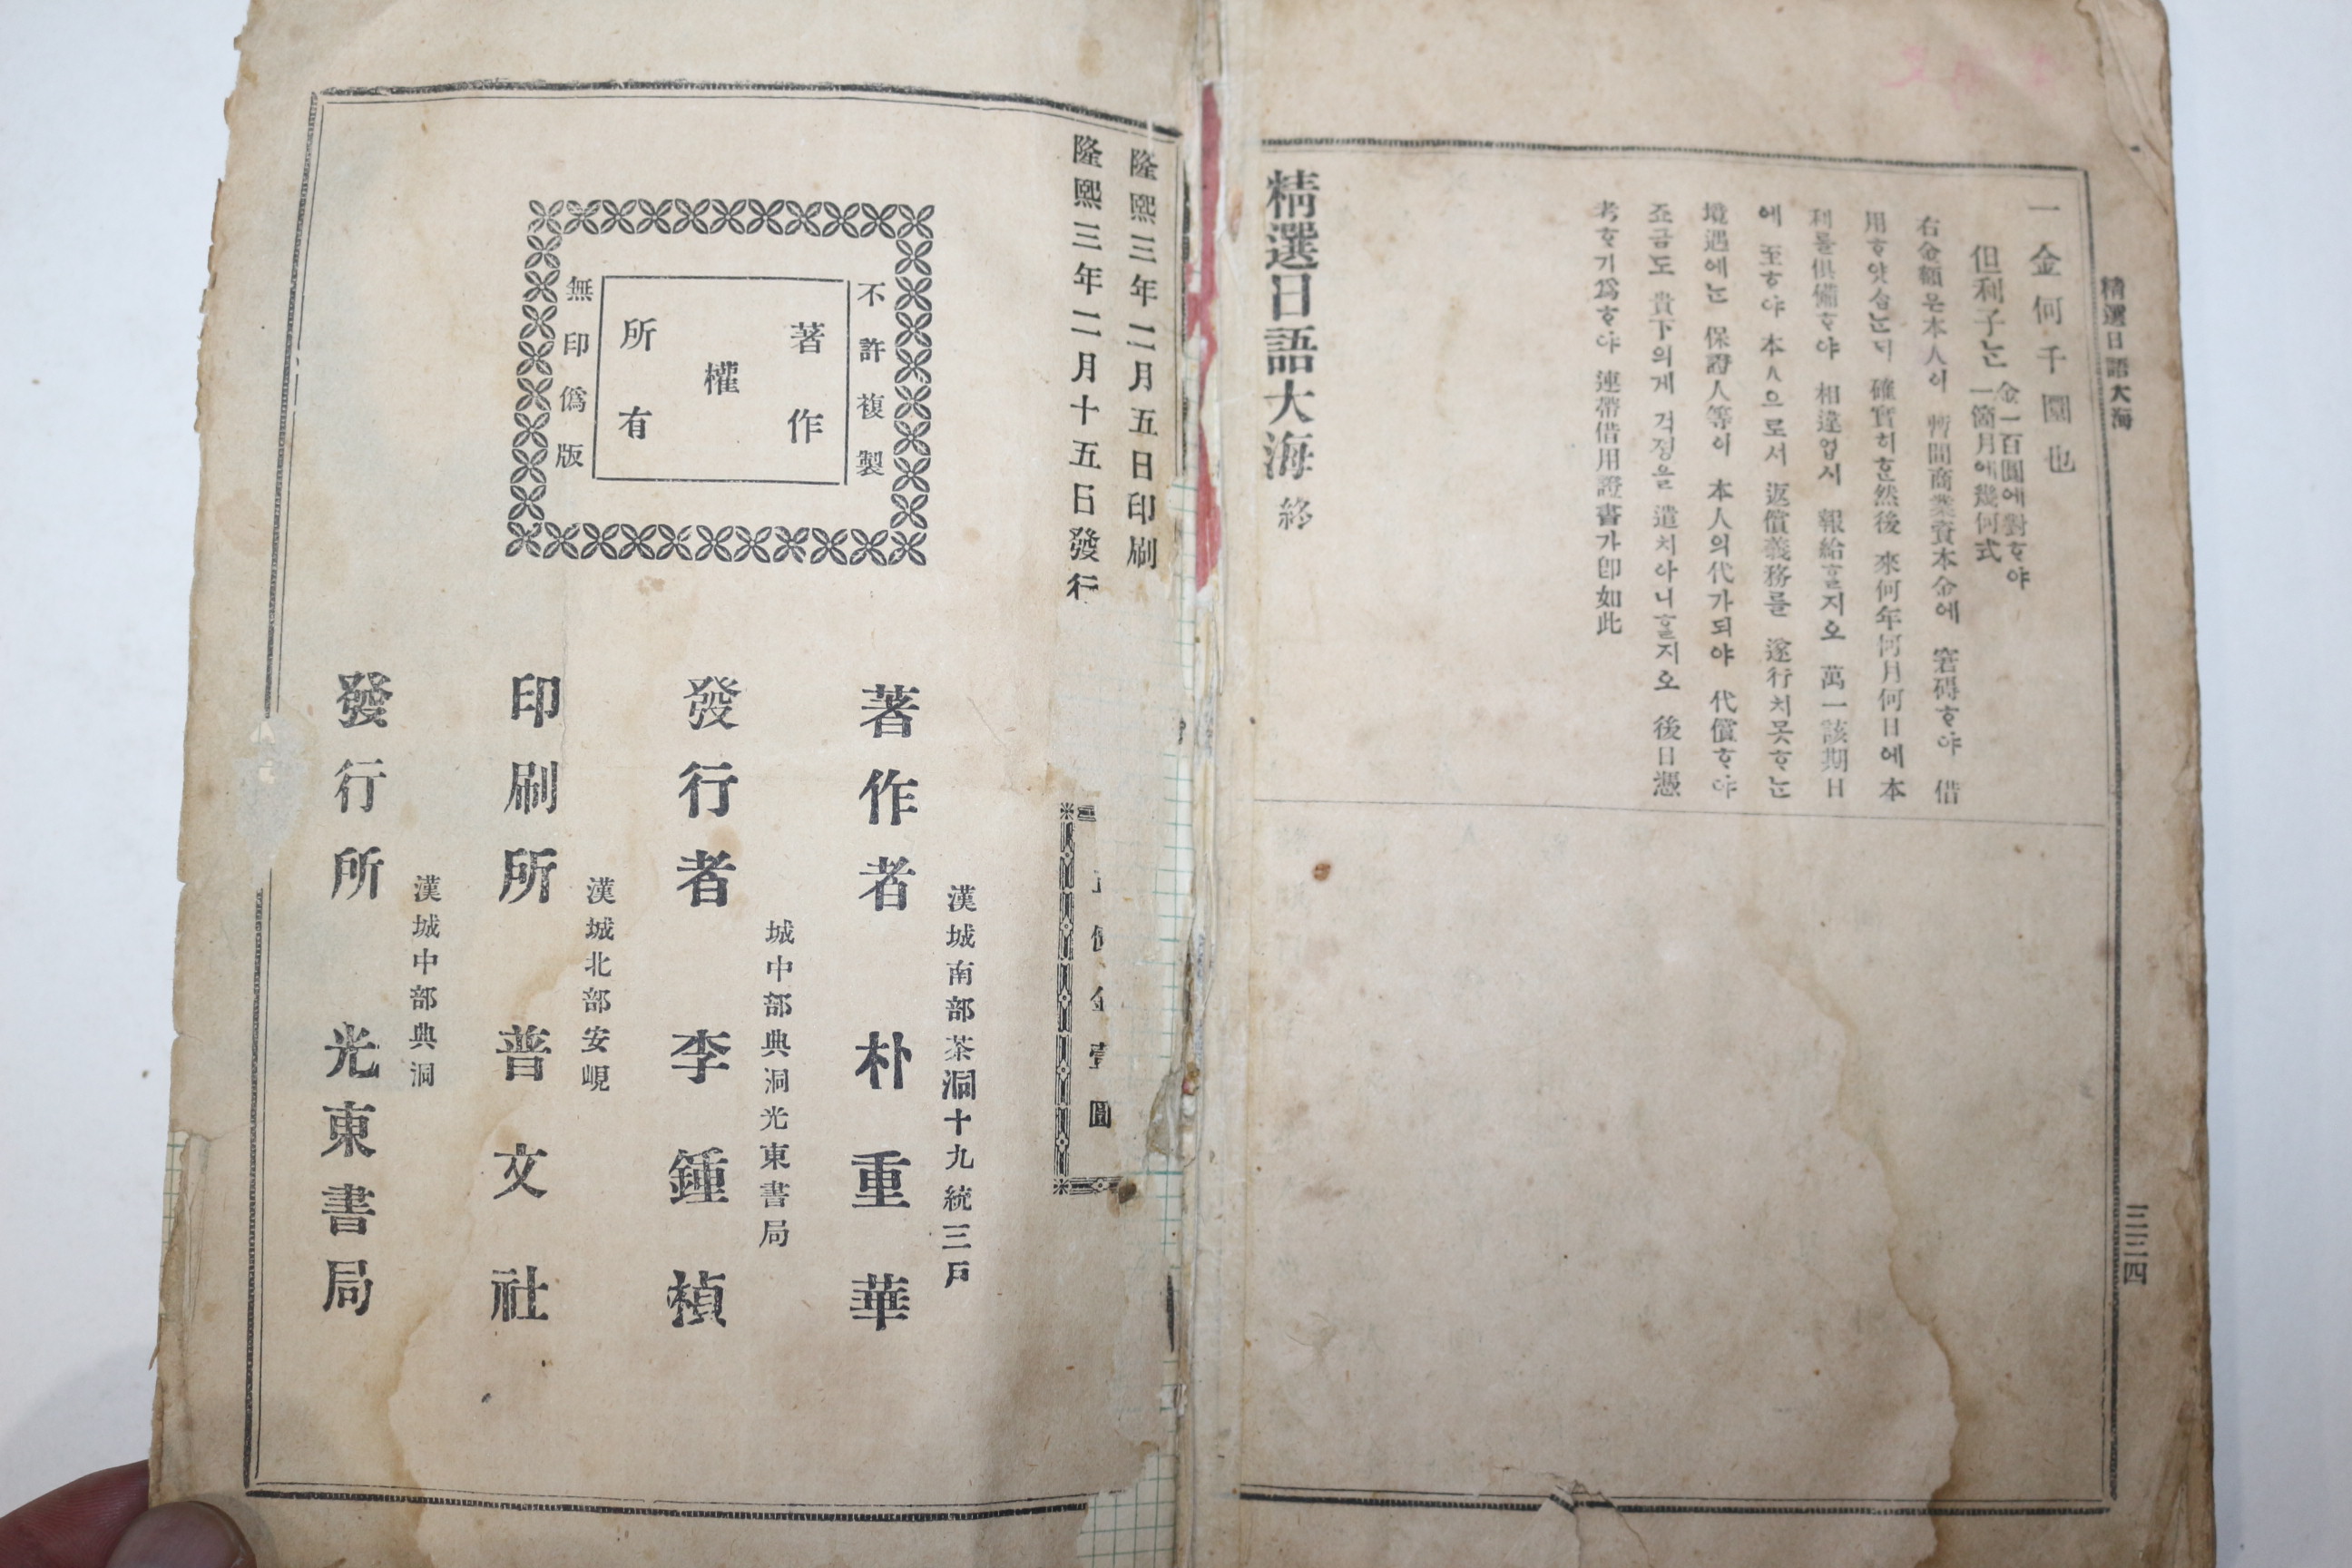 精選日語大海
三三四
一金何千圜也
但利子는 金一百圜에對ᄒᆞ야
一箇月에幾何式
右金額은本人이 暫間商業資本金에 窘碍ᄒᆞ야 借
用ᄒᆞ얏ᄉᆞᆸ는ᄃᆡ 確實히ᄒᆞᆫ然後 來何年何月何日에本
利를俱備ᄒᆞ야 相違업시 報給ᄒᆞᆯ지오 萬一該期日
에 至ᄒᆞ야 本人으로서 返償義務를 遂行치못ᄒᆞ는
境遇에는 保證人等이 本人의代가되야 代償ᄒᆞ야
죠금도 貴下의게 걱졍을 遺치아니ᄒᆞᆯ지오 後日憑
考ᄒᆞ기爲ᄒᆞ야 連帶借用證書가卽如此
精選日語大海 終
隆熙三年二月五日印刷
隆熙三年二月十五日發行
圓
不許複製
著作
權
所有
無印僞版
漢城南部茶洞十九統三戶
著作者 朴重華
城中部典洞光東書局
發行者 李鍾楨
漢城北部安峴
印刷所 普文社
漢城中部典洞
發行所 光東書局